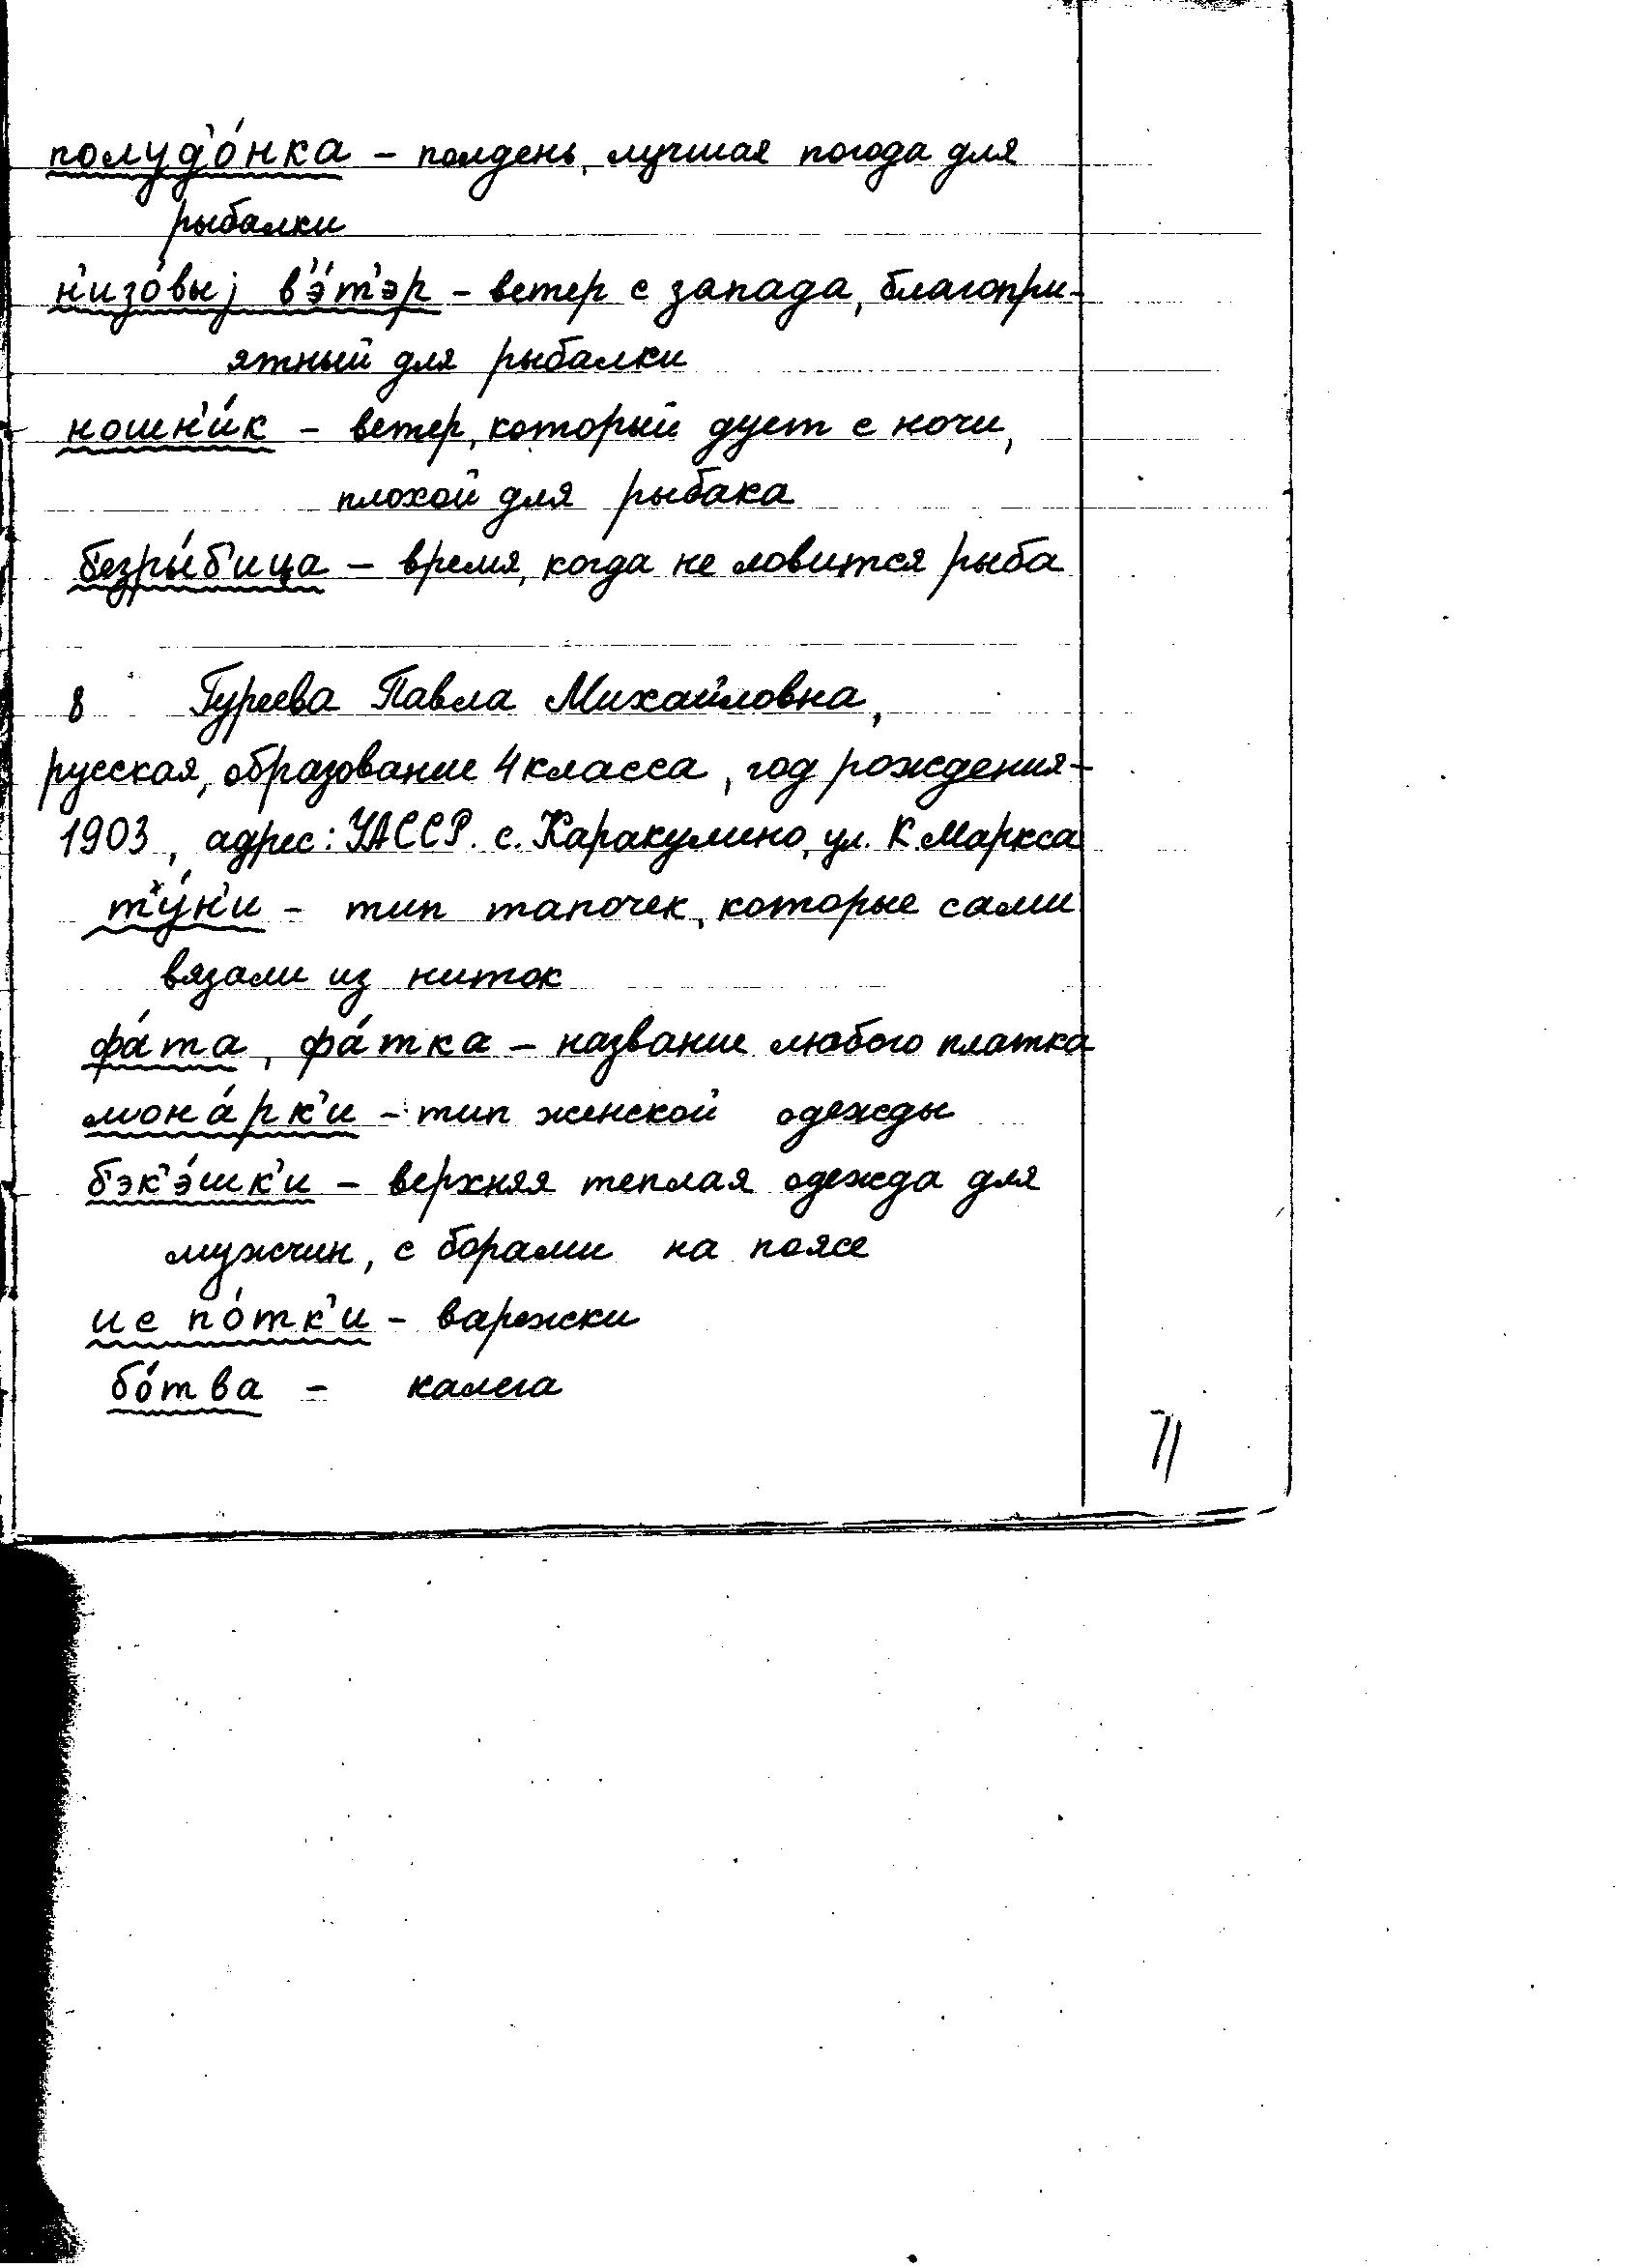 полуд'о́нка – полдень, лучшая погода для
рыбалки
н'изо́выj в'э́т'эр – ветер с запада, благопри-
ятный для рыбалки
ношн'и́к – ветер, который дует с ночи,
плохой для рыбака
б'езры́б'ица – время, когда не ловится рыба
8 Гуреева Павла Михайловна,
русская, образование 4 класса, год рождения –
1903, адрес: УАССР. с. Каракулино, ул. К Маркса
т'у́н'и – тип тапочек, которые сами
вязали из ниток
фа́та, фа́тка – название любого платка
мона́рк'и – тип женской одежды
б'эк'э́шк'и – верхняя теплая одежда для
мужчин, с борами на поясе
ис по́тк'и – варежски
бо́тва – калега
71